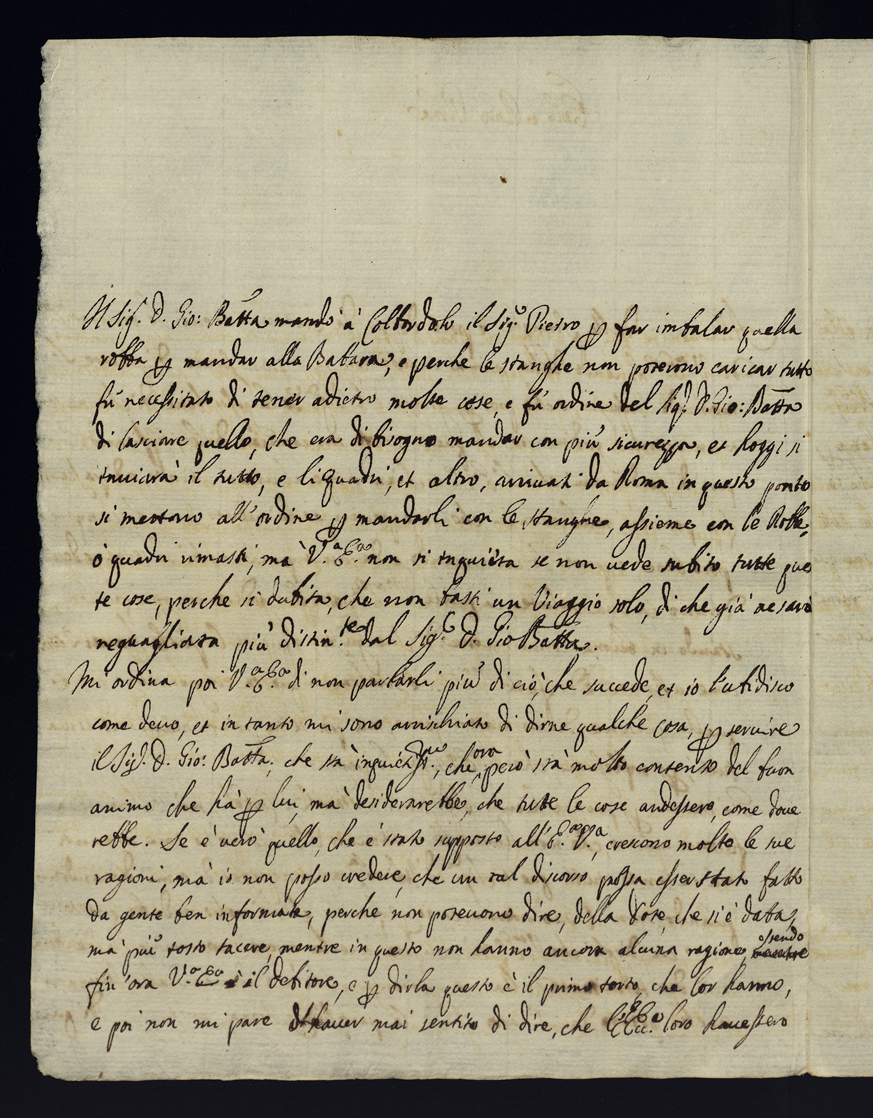 Il Sig.r D. Gio: Batta mandò à Colbordolo il Sig.r Pietro p far imbalar quella
robba p mandar alla Babara, e perche le stanghe non potevono caricar tutto
fù necessitato di tener adietro molte cose, e fù ordine del Sig.r D. Gio: Batta
di lasciare quello, che era di bisogno mandar con più sicurezza, et hoggi si
inuiarà il tutto, e li quadri, et altro, arriuati da Roma in questo ponto
si mettono all'ordine p mandarli con le stanghe, assieme con le Robbe,
ò quadri rimasti, mà V.a E.a non si inquieta se non uede subito tutte que
te cose, perche si dubita, che non basti un Viaggio solo, di che già ne sarà
reguagliata più distin.te dal Sig.r D. Gio Batta.
Mi ordina poi V.a E.a di non parlarli più di ciò, che succede, et io l'ubidisco
come deuo, et in tanto mi sono arrischiato di dirne qualche cosa, p seruire
il Sig.r D. Gio: Batta, che stà, che ora però stà molto contento del buon
animo che hà p lui, mà desiderarebbe, che tutte le cose andassero, come doue
rebbe. Se è uero quello, che è stato supposto all'E.a V.a, crescono molto le sue
ragioni, mà io non posso credere, che un tal discorso possa esser stato fatto
da gente ben informata, perche non poteuono dire, della dote, che si è data,
mà più tosto tacere, mentre in questo non hanno ancora alcuna ragione, essendo
fin'ora V.a E.a il debitore, e p dirla questo è il primo torto, che lor hanno,
e poi non mi pare d'hauer mai sentito di dire, che loro hauessero